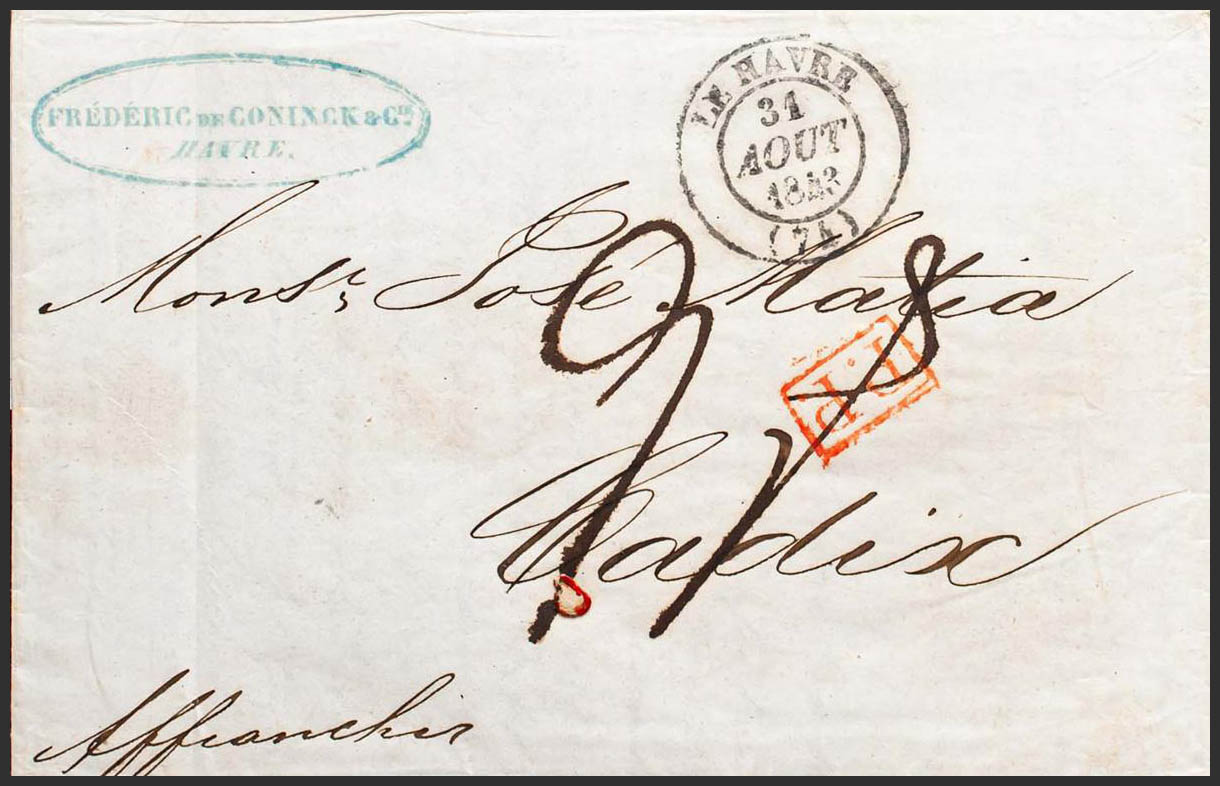 FRÉDÉRIC DE CONINCK & Cie.
HAVRE.
LE HAVRE
31
AOUT
1843
(74)
Monsr José Matia
P.P.
Cadix
Affranchir